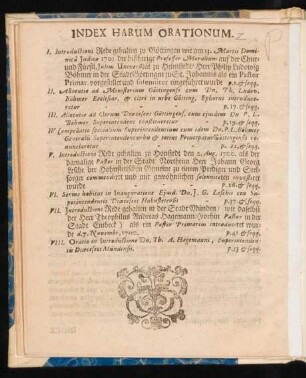 INDEX HARUM ORATIONUM.
I. Introductions Rede gehalten zu Göttingen wie am 13. Martii Domi-
nicâ Judica 1701 der bißherige Professor Moralium auf der Chur-
und Fürstl. Julius Universität zu Helmstedt/ Herr Philip Ludowig
Böhmer in der Stadt Göttingen zu St. Johannis als ein Pastor
Primar. vorgestellet und solenniter eingeführet wurde p. 1. & seqq.
II. Allocutio ad Ministerium Göttingense cum Dn. Ph. Ludov.
Böhmer Ecclesiæ, & cleri in urbe Götting. Ephorus introduce-
retur p. 17. & seqq.
III. Allocutio ad Clerum Dioeceseos Göttingensis, cum eidem Dn. P. L.
Böhmer Superintendens constitueretur p. 19. & seqq.
IV. Compellatio specialium Superintendentium cum idem Dn. P. L. Böhmer
Generalis Superintendens urbis & totius Principatus Göttingensis re-
nunciaretur p. 21. & seqq.
V. Introductions Rede gehalten zu Hohnstedt den 2. Aug. 1702. als der
damalige Pastor in der Stadt Northeim Herr Johann Georg
Lesche der Hohnstedtischen Gemeine zu einem Prediger und Seel-
sorger commendiret und mit gewöhnlichen solennitäten investiret
wurde p. 26. & seqq.
VI. Sermo habitus in Inauguratione Ejusd. Dn. J. G. Leschii cum Su-
perintendentis Dioeceseos Hohnstetensis p. 37 & seqq.
VII. Introductions Rede gehalten in der Stadt Münden/ wie daselbst
der Herr Theophilus Andreas Hagemann (vorhin Pastor in der
Stadt Einbeck) als ein Pastor Primarius introduciret wur-
de d. 7. Novembr. 1702. p. 41 & seqq.
VIII. Oratio in Introductione Dn. Th. A. Hagemanni, Superintenden-
tis Dioeceseos Mündensis. p. 53 & seqq.